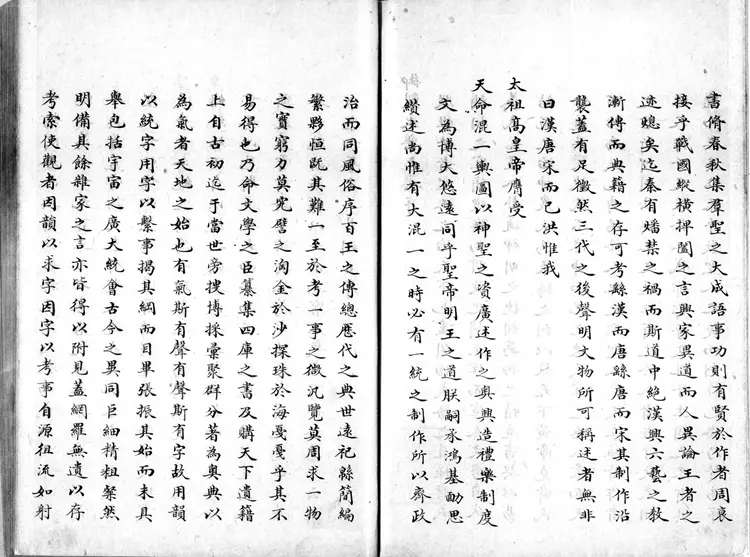 書脩春秋集羣聖之大成語事功則有賢於作者周衰
接乎戰國縱横捭闔之言興家異道而人異論王者之
迹熄矣迄秦有燔禁之禍而斯道中絶漢興六藝之教
漸傳而典籍之存可考繇漢而唐繇唐而宋其制作沿
襲蓋有足徵然三代之後聲明文物所可稱述者無非
曰漢唐宋而已洪惟我
太祖髙皇帝膺受
天命混一輿圖以神聖之資廣述作之奥興造禮樂制度
文為博大悠遠同乎聖帝明王之道朕嗣承鴻基勔思
纘述尚惟有大混一之時必有一統之制作所以齊政
治而同風俗序百王之傳緫歷代之典世遠祀緜簡編
繁夥恒慨其難一至於考一事之微汎覽莫周求一物
之實窮力莫究譬之淘金於沙探珠於海戞戞乎其不
易得也乃命文學之臣纂集四庫之書及購天下遺籍
上自古初迄于當世旁搜博採彙聚群分著為奥典以
為氣者天地之始也有氣斯有聲有聲斯有字故用韻
以統字用字以繫事揭其綱而目畢張振其始而末具
舉包括宇宙之廣大統㑹古今之異同巨細精粗粲然
明備其餘雜家之言亦皆得以附見蓋網羅無遺以存
考索使觀者因韻以求字因字以考事自源徂流如射